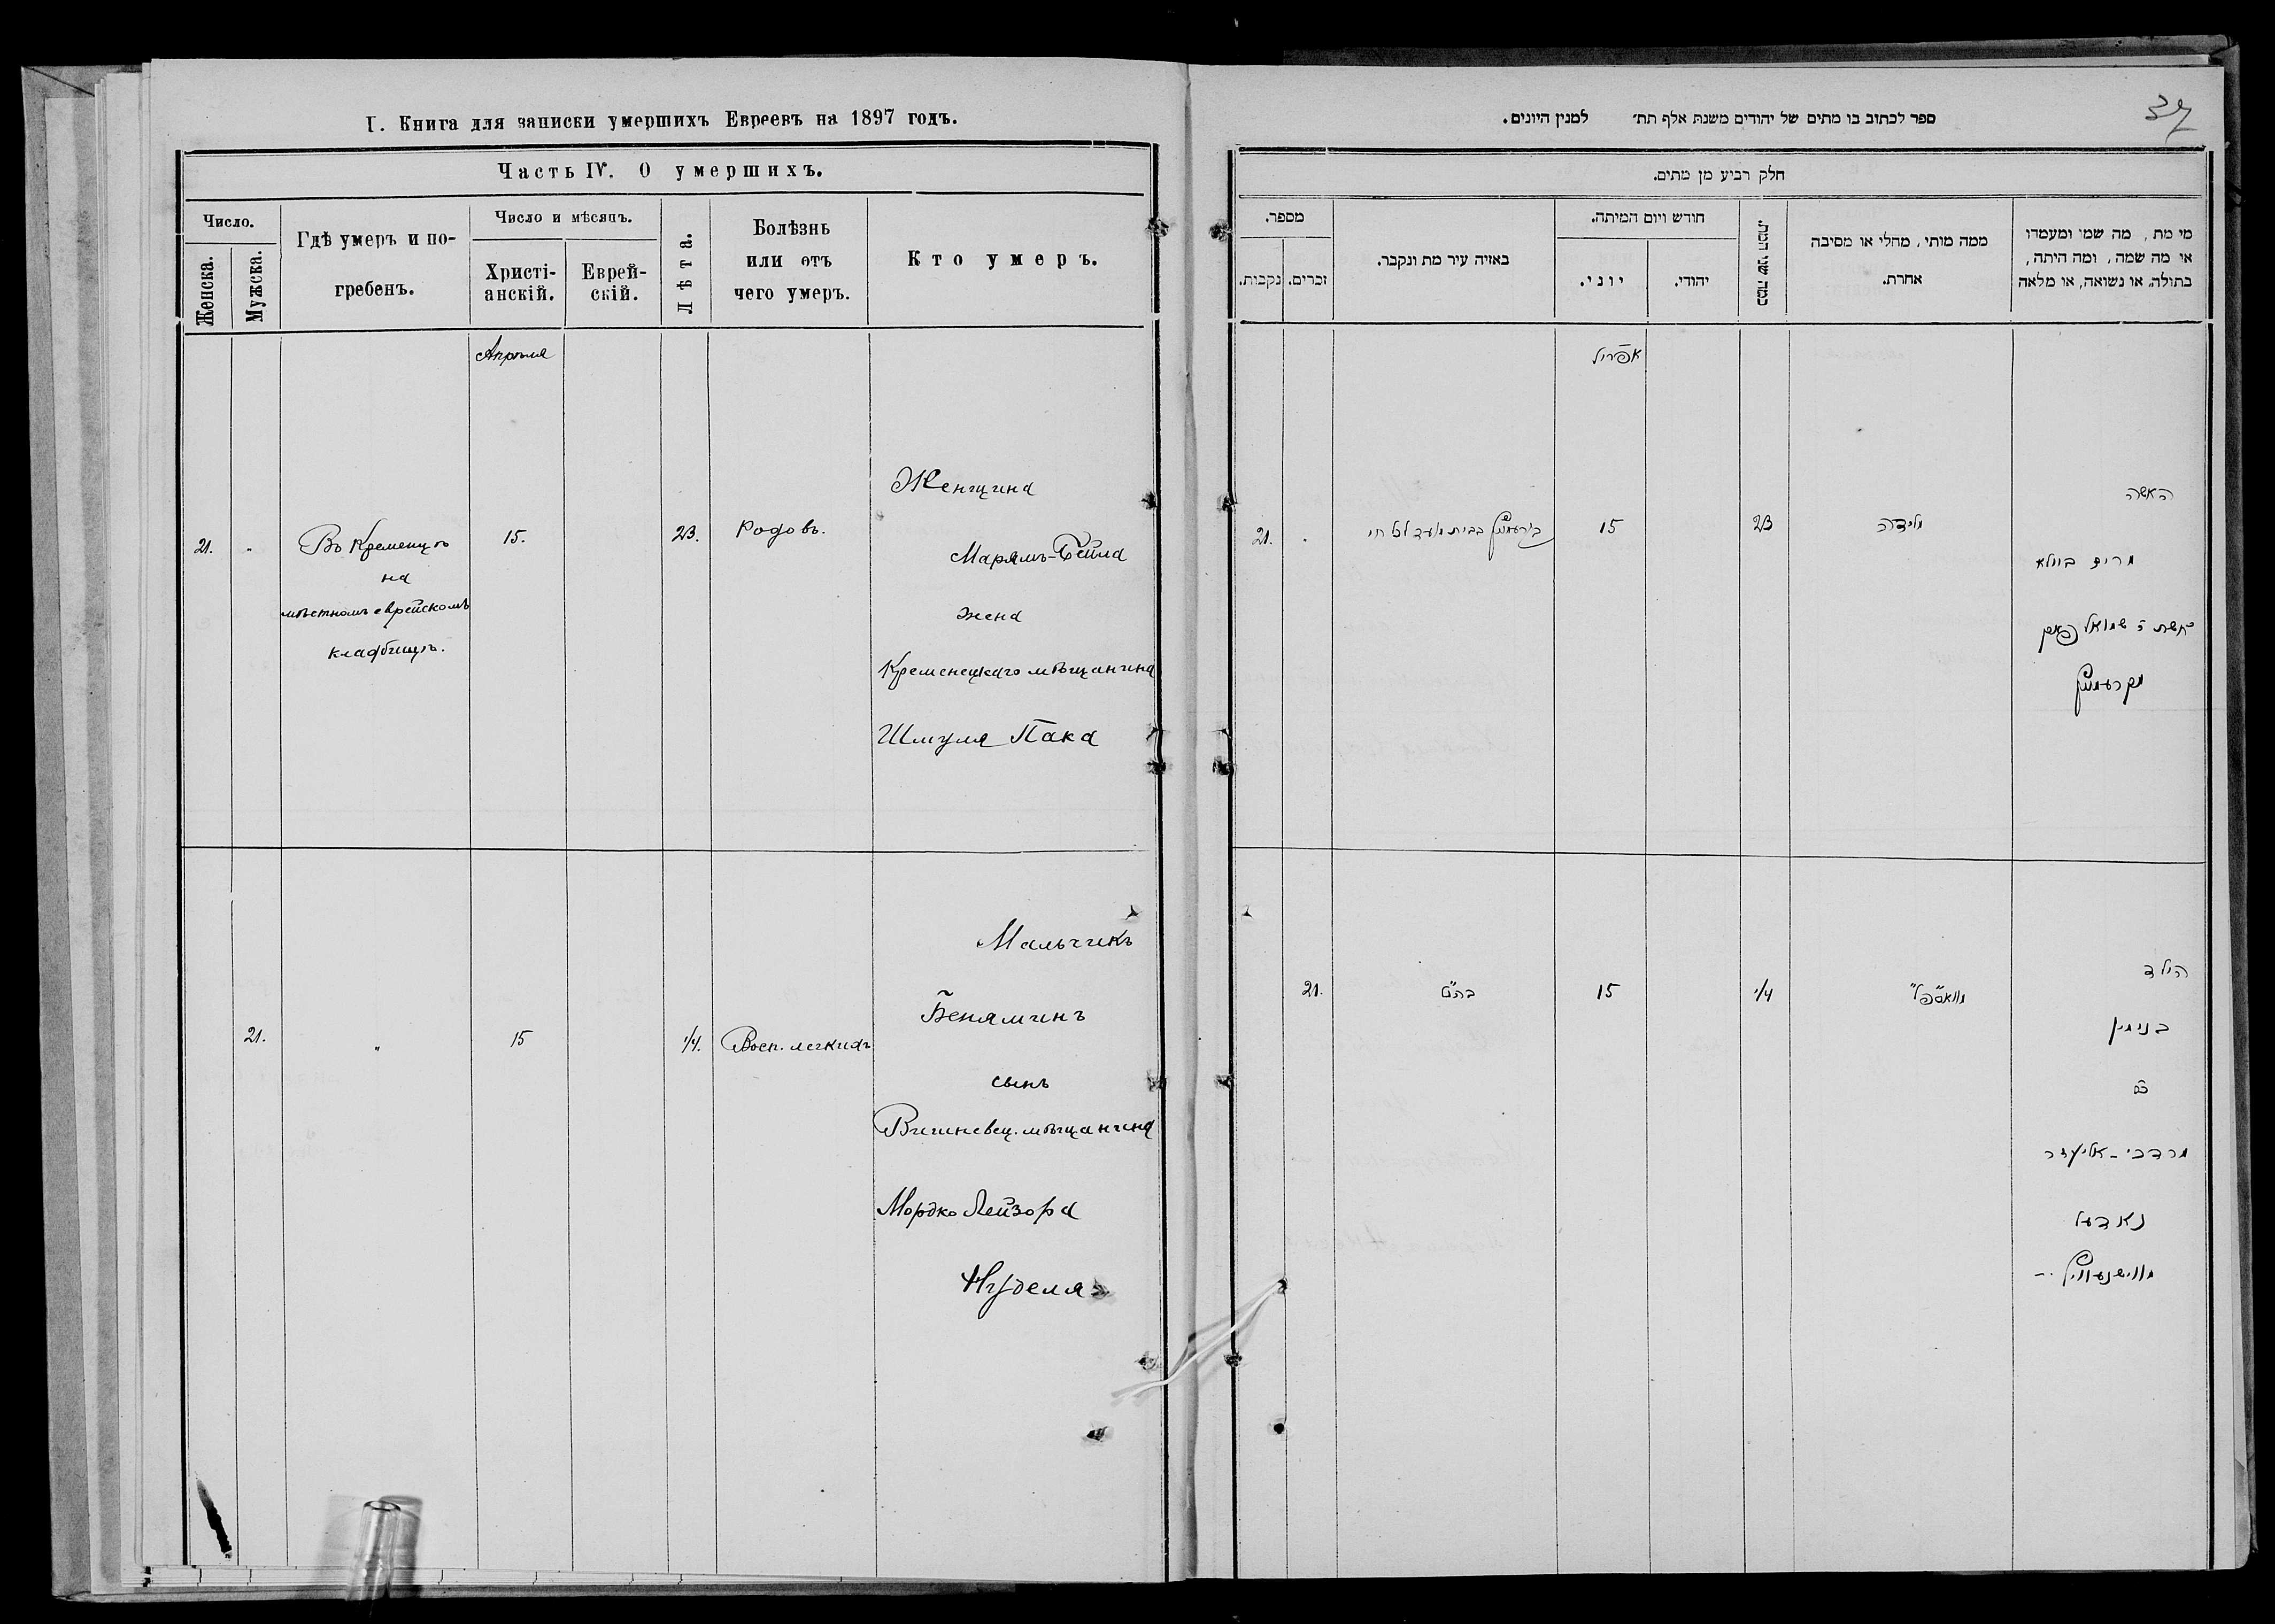 I. Книга для записки умершихъ Евреевъ на 1897 годъ.
Часть IV. О умершихъ.
Число.
Женска.
Мужска.
Гдѣ умеръ и по-
гребенъ.
Число и мѣсяцъ.
Христі-
анскій.
Еврей-
скій.
Лѣта.
Болѣзнь
или отъ
чего умеръ.
Кто умеръ.
Апрѣля
21.
"
Въ Кременцѣ
на
мѣстномъ еврейскомъ
кладбищѣ.
15.
23.
Родовъ.
Женщина
Марямъ-Бейла
жена
Кременецкаго мѣщанина
Шмуля Пака
21.
"
15
1/4.
Восп. легкихъ
Мальчикъ
Беняминъ
сынъ
Вишневец. мѣщанина
Мордко Лейзора
Нуделя
37
ספר לכתוב בו מתים של יהודים משנת אלף תת׳ למנין היונים.
חלק רביע מן מתים.
מספר.
נקבות.
זכרים.
באיזה עיר מת ונקבר.
חודש ויום המיתה.
יוני.
יהודי.
כמה שני המת.
ממה מותי, מחלי או מסיבה
אחרת.
מי מת, מה שמו ומעמדו
או מה שמה, ומה היתה,
בתולה או נשואה, או מלאה
אפריל
21.
בבית מועד לכל חי
15
23
מלידה
האשה
מרים ביילא
אשת ר שמואל פאק
מקרעמניץ
21.
15
1/4
הילד
בנימין
בר
מרדכי-אליעזר
נאדעל